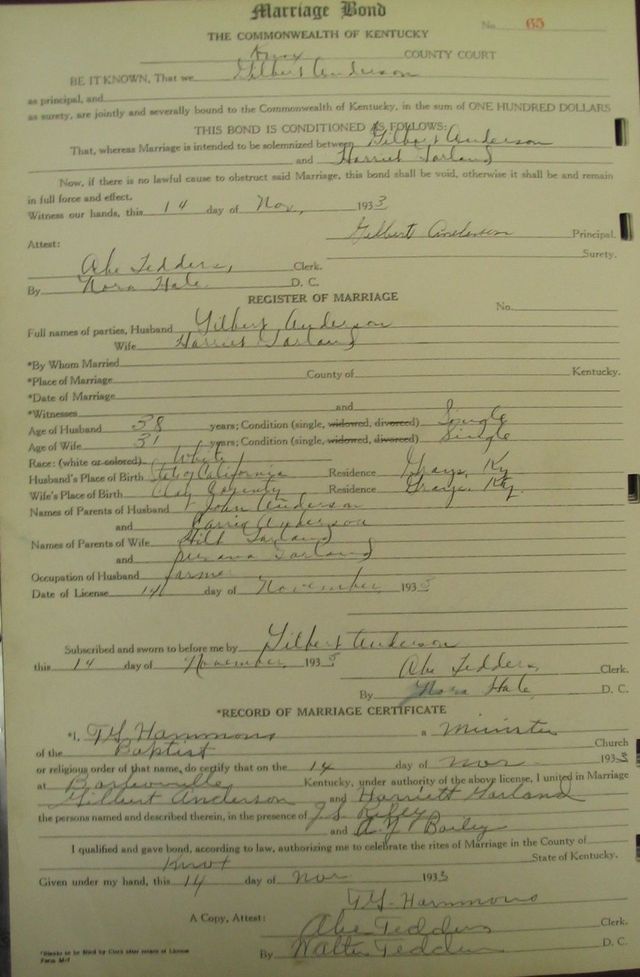 Marriage Bond
No. 65
THE COMMONWEALTH OF KENTUCKY
Knox COUNTY COURT
BE IT KNOWN, That we Gilbert Anderson
as principal, and
as surety, are jointly and severally bound to the Commonwealth of Kentucky, in the sum of ONE HUNDRED DOLLARS
THIS BOND IS CONDITIONED AS FOLLOWS:
That, whereas Marriage is intended to be solemnized between Gilbert Anderson
and Harriet Garland
Now, if there is no lawful cause to obstruct said Marriage, this bond shall be void, otherwise it shall be and remain
in full force and effect.
Witness our hands, this 14 day of Nov, 1933
Gilbert Anderson Principal.
Surety.
Attest:
Abe Tedders, Clerk.
By Nora Hale D. C.
REGISTER OF MARRIAGE
No.
Full names of parties, Husband Gilbert Anderson
Wife Harriet Garland
*By Whom Married
*Place of Marriage County of Kentucky.
*Date of Marriage
*Witnesses and
Age of Husband 38 years; Condition (single, widowed, divorced) Single
Age of Wife 31 years; Condition (single, widowed, divorced) Single
Race: (white or colored) White
Husband's Place of Birth State of California Residence Grays, Ky
Wife's Place of Birth Clay County Residence Grays, Ky.
Names of Parents of Husband John Anderson
and Anderson
Names of Parents of Wife Garland
and Garland
Occupation of Husband farmer
Date of License 14 day of November, 1933
Subscribed and sworn to before me by Gilbert Anderson
this 14 day of November 1933
Abe Tedders, Clerk.
By Nora Hale, D. C.
*RECORD OF MARRIAGE CERTIFICATE
*I, T G Hammons a Minister
of the Baptist Church
or religious order of that name, do certify that on the 14 day of nov 1933
at Barbourville Kentucky, under authority of the above license, I united in Marriage
Gilbert Anderson and Harriett Garland
the persons named and described therein, in the presence of J. S.
and A. J. Bailey
I qualified and gave bond, according to law, authorizing me to celebrate the rites of Marriage in the County of
Knox State of Kentucky.
Given under my hand, this 14 day of nov 1933
T G Hammons
A Copy, Attest: Abe Tedders Clerk.
By Walter Tedders D. C.
*Blanks to be filled by Clerk after return of License
Form M-7